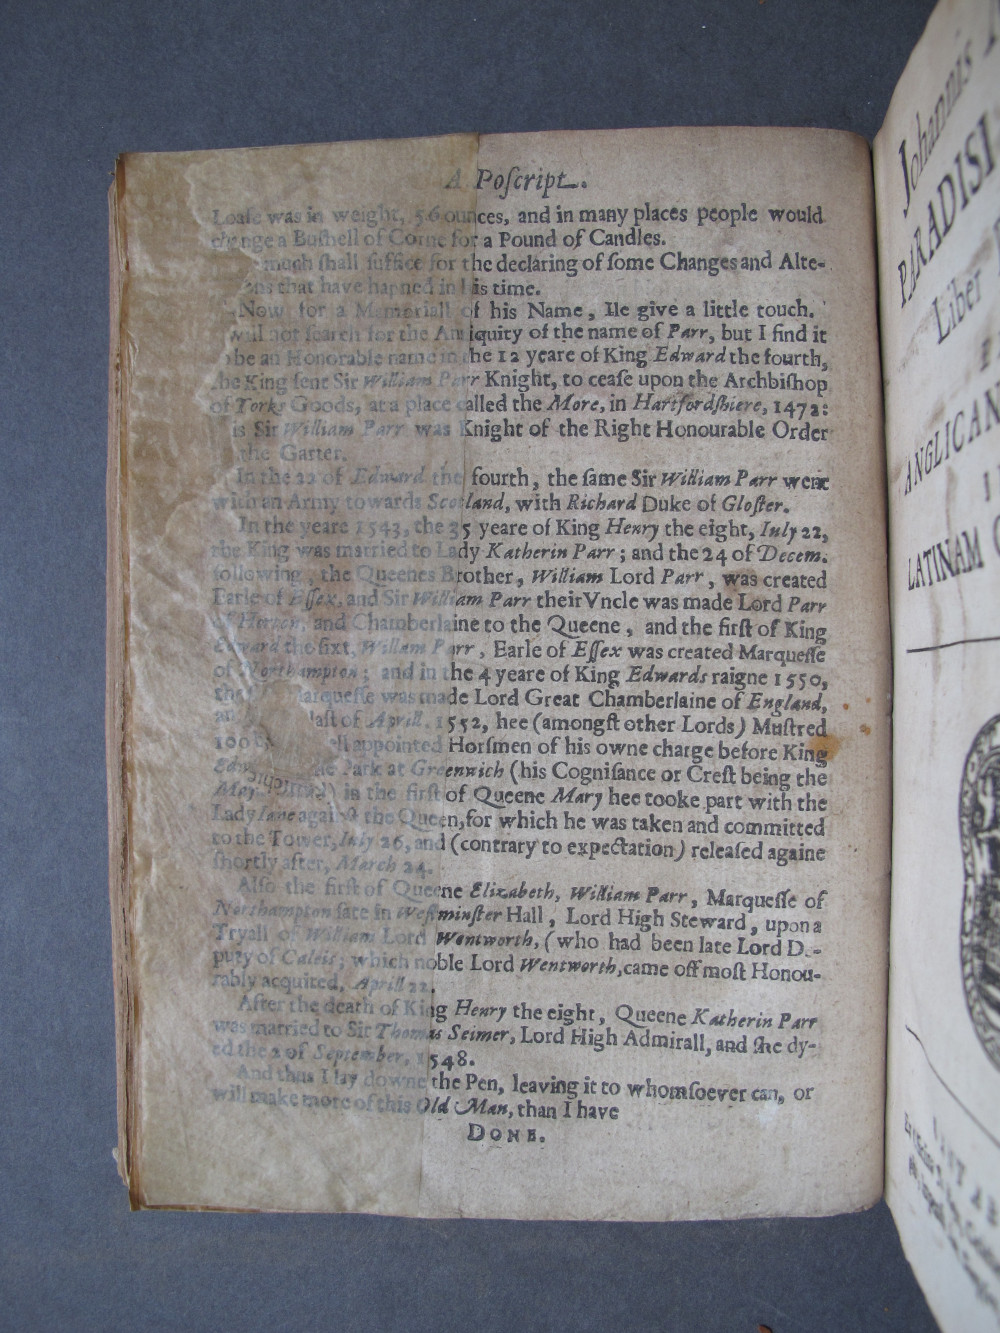 A Poſcript.
Loafe was in weight, 56 ounces, and in many places people would
change a Buſhell of Corne for a Pound of Candles.
much ſhall ſuffice for the declaring of ſome Changes and Alte-
ons that have hapned in his time.
Now for a Memoriall of his Name, Ile give a little touch.
will not ſearch for the Antiquity of the name of Parr, but I find it
be an Honorable name in the 12 yeare of King Edward the fourth,
he King ſent Sir William Parr Knight, to ceaſe upon the Archbiſhop
of Yorks Goods, at a place called the More, in Hartfordſhiere, 1472:
is Sir William Parr was Knight of the Right Honourable Order
the Garter.
In the 22 of Edward the fourth, the ſame Sir William Parr went
with an Army towards Scotland, with Richard Duke of Gloſter.
In the yeare 1543, the 35 yeare of King Henry the eight, Iuly 22,
the King was married to Lady Katherin Parr; and the 24 of Decem.
following, the Queenes Brother, William Lord Parr, was created
Earle of Eſſex, and Sir William Parr their Vncle was made Lord Parr
of Horton, and Chamberlaine to the Queene, and the firſt of King
Edward the ſixt, William Parr, Earle of Eſſex was created Marqueſſe
of Northampton; and in the 4 yeare of King Edwards raigne 1550,
Marqueſſe was made Lord Great Chamberlaine of England,
laſt of Aprill 1552, hee (amongſt other Lords) Muſtred
100 ell appointed Horſmen of his owne charge before King
Park at Greenwich (his Cogniſance or Creſt being the
May in the firſt of Queene Mary hee tooke part with the
Lady Iane againſt the Queen, for which he was taken and committed
to the Tower, Iuly 26, and (contrary to expectation) releaſed againe
ſhortly after, March 24.
Alſo the firſt of Queene Elizabeth, William Parr, Marqueſſe of
Northampton ſate in Weſtminſter Hall, Lord High Steward, upon a
Tryall of William Lord Wentworth, (who had been late Lord De-
puty of Caleis; which noble Lord Wentworth, came off moſt Honou-
rably acquired, Aprill 22.
After the death of King Henry the eight, Queene Katherin Parr
was married to Sir Thomas Seimer, Lord High Admirall, and ſhe dy-
ed the 2 of September, 1548.
And thus I lay downe the Pen, leaving it to whomſoever can, or
will make more of this Old Man, than I have
DONE.
Johannis
PARADISI
Liber
ANGLICAN
LATINAM